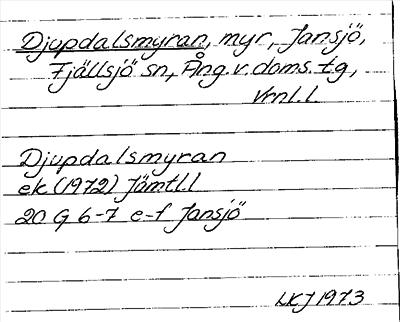 Djupdalsmyran, myr, Jansjö,
Fjällsjö sn, Ång. v. doms. tg,
Vrnl. l.
Djupdalsmyran
ek (1972) Jämtl. l
20 G 6-7 e-f Jansjö
LKJ 1973